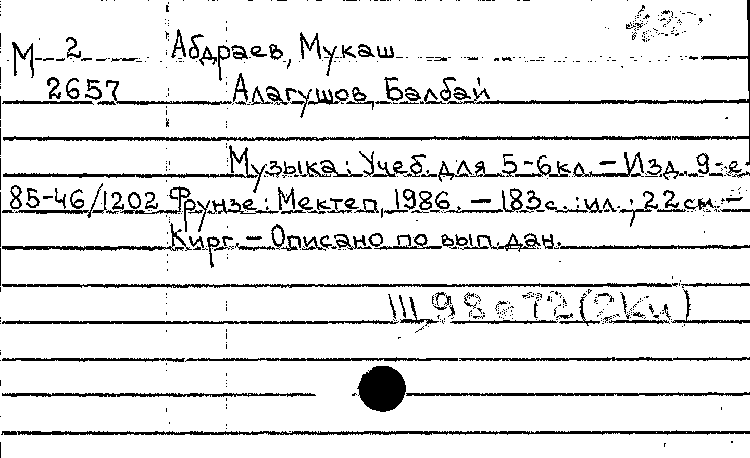 М 2 Абдраев, Мукаш
2657 Алагушов, Балбай
Музыка: Учеб. для 5-6 кл. - Изд. 9-е.
85-46/1202 Фрунзе: Мектеп, 1986. - 183 с.: ил.; 22 см. -
Кирг. - Описано по вып. дан.
Щ98 с 72 (2Ки)